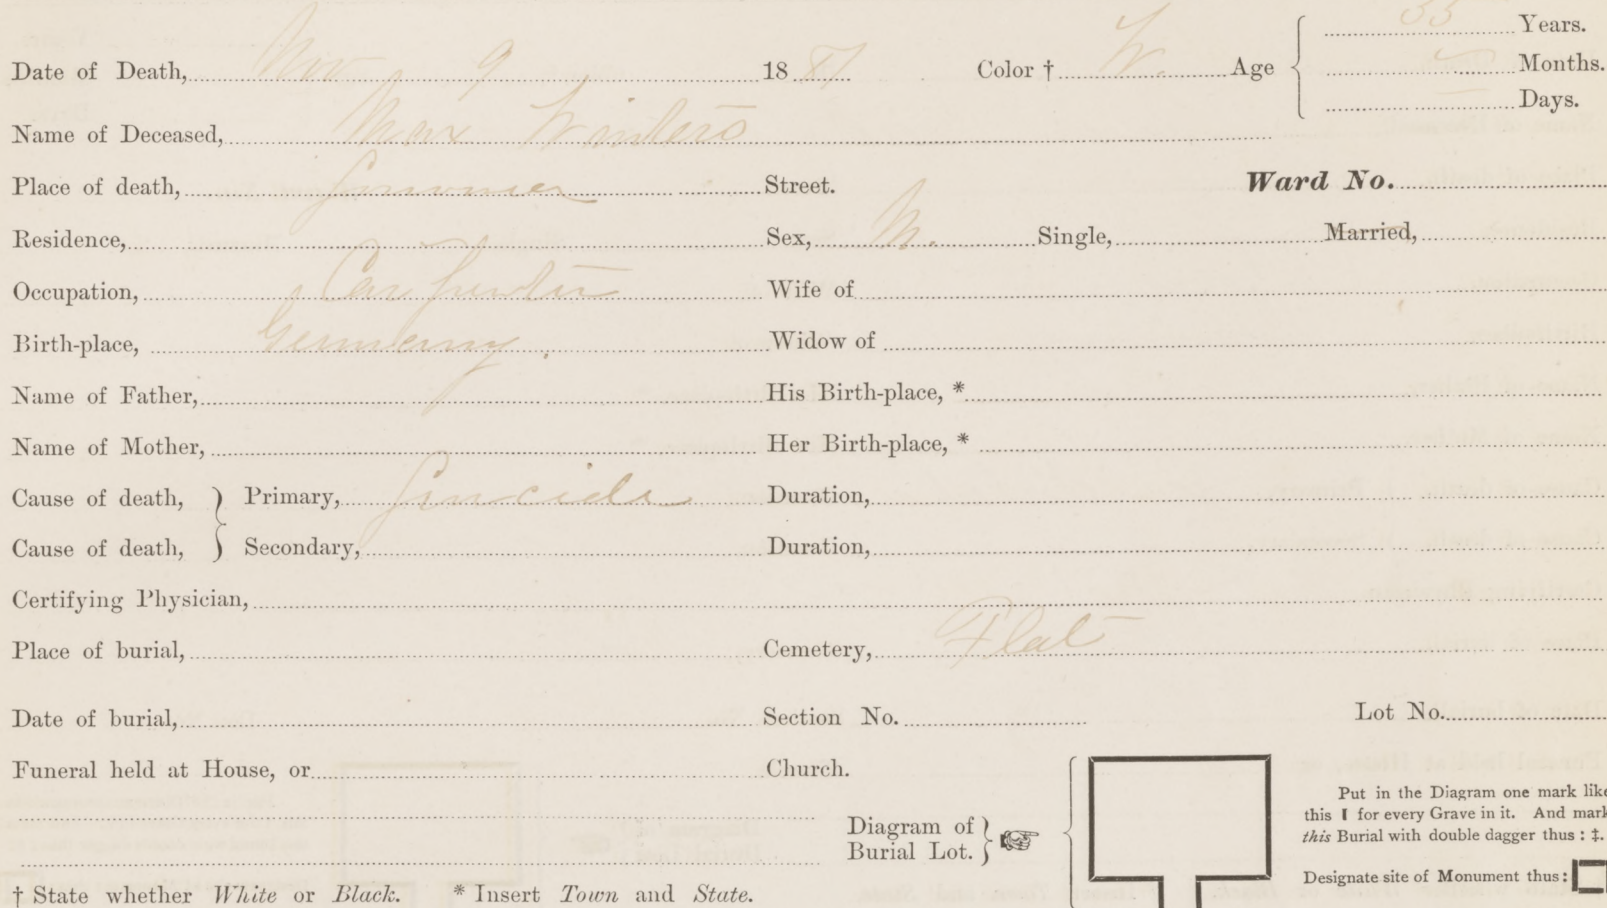 Date of Death, Nov 9 1887 Color † W. Age 35 Years.
Months.
Days.
Name of Deceased, Max Winters
Place of death, Street. Ward No.
Residence, Sex, M. Single, Married,
Occupation, Carpenter Wife of
Birth-place, Germany. Widow of
Name of Father, His Birth-place, *
Name of Mother, Her Birth-place, *
Cause of death, Primary, Suicide Duration,
Cause of death, Secondary, Duration,
Certifying Physician,
Place of burial, Cemetery, Flat
Date of burial, Section No. Lot No.
Funeral held at House, or Church.
Diagram of
Burial Lot.
Put in the Diagram one mark like
this I for every Grave in it. And mark
this Burial with double dagger thus : ‡.
Designate site of Monument thus:
† State whether White or Black. * Insert Town and State.